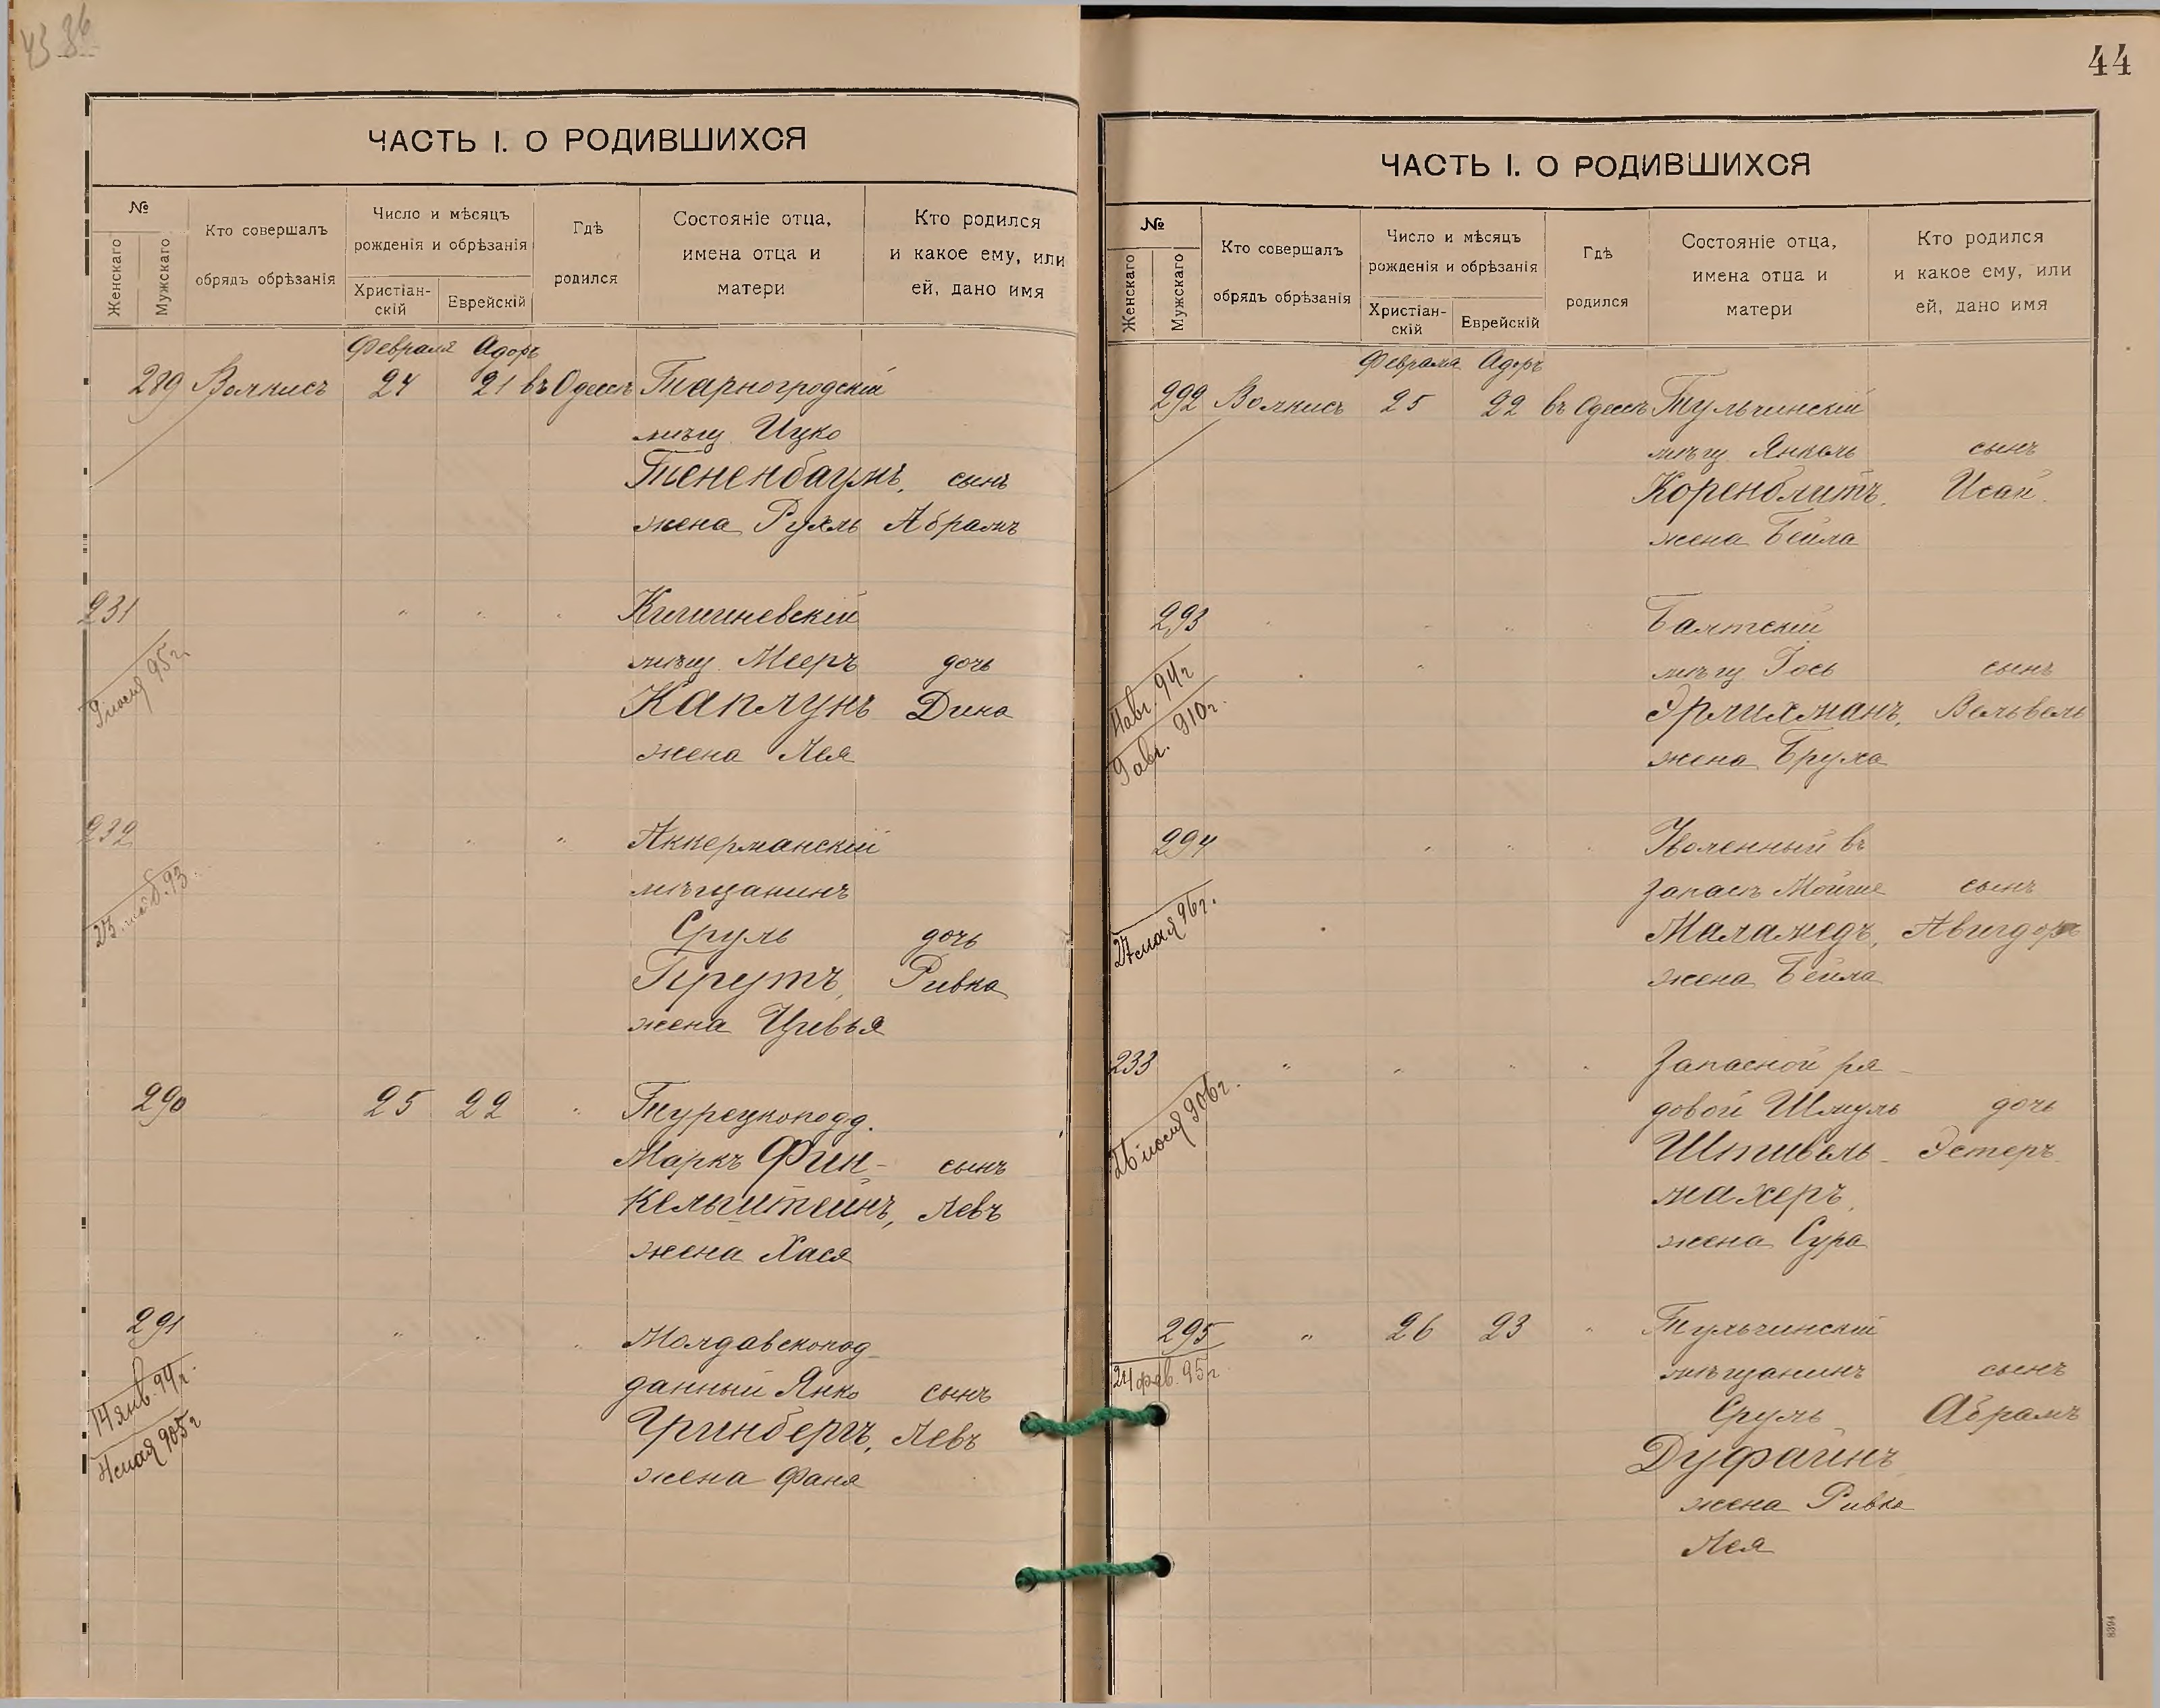 43 86
ЧАСТЬ I. О РОДИВШИХСЯ
№
Женскаго
Мужскаго
Кто совершалъ
обрядъ обрѣзанія
Число и мѣсяцъ
рожденія и обрѣзанія
Христіан-
скій
Еврейскій
Гдѣ
родился
Состояніе отца,
имена отца и
матери
Кто родился
и какое ему, или
ей, дано имя
Февраля Адоръ
289 Волкисъ 24 21 въ Одессѣ Тарногродскій
мѣщ. Ицко
Тененбаумъ, сынъ
жена Рухль Абрамъ
231 " " " Кишиневскій
мѣщ. Мееръ дочь
Каплунъ Дина
жена Лея
9 іюля 95 г.
232 " " " Аккерманскій
мѣщанинъ
Сруль дочь
Прутъ, Ривка
жена Цивья
290 " 25 22 " Турецкоподд.
Маркъ Фин- сынъ
кельштейнъ, Левъ
жена Хася
291 " " " " Молдавскопод-
данный Янко сынъ
Гринбергъ, Левъ
жена Фаня
14 янв. 99 г.
4 мая 905 г
44
ЧАСТЬ I. О РОДИВШИХСЯ
№
Женскаго
Мужскаго
Кто совершалъ
обрядъ обрѣзанія
Число и мѣсяцъ
рожденія и обрѣзанія
Христіан-
скій
Еврейскій
Гдѣ
родился
Состояніе отца,
имена отца и
матери
Кто родился
и какое ему, или
ей, дано имя
Февраля Адоръ
292 Волкисъ 25 22 въ Одессѣ Тульчинскій
мѣщ. Янкель сынъ
Коренблитъ, Исай
жена Бейла
293 " " " Балтскій
мѣщ. Іось сынъ
Эрлихманъ, Вельвель
жена Бруха
авг. 94 г
9 авг. 910 г.
294 " " " Уволенный въ
запасъ Мойше сынъ
Маламедъ, Авигдоръ
жена Бейла
27 мая 96 г.
233 " " " " Запасной ря-
довой Шмуль дочь
Штивель- Эстеръ
махеръ,
жена Сура
26 іюля 906 г.
295 " 26 23 " Тульчинскій
мѣщанинъ сынъ
Сруль Абрамъ
Дуфаинъ
жена Ривка
Лея
24 фев. 95 г
8394